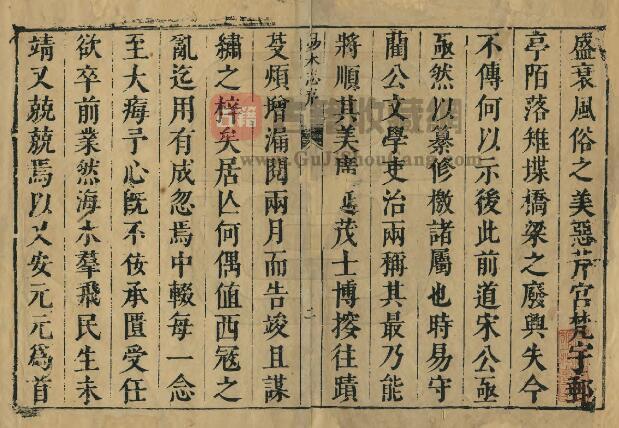 盛衰風俗之美惡芹宫梵宇郵
亭陌落雉堞橋梁之廢興失今
不傳何以示後此前道宋公亟
亟然以纂修檄諸屬也時易守
藺公文學吏治兩稱其最乃能
將順其美廣延茂士博搜往蹟
芟煩增漏閱兩月而告竣且謀
繡之梓矣居亾何偶值西冦之
亂迄用有成忽焉中輟每一念
至大痗予心旣不佞承匱受任
欲卒前業然海水羣飛民生未
靖又兢兢焉以乂安元元為首
易水志序
二
古籍收藏網
www.GuJiShouCang.com